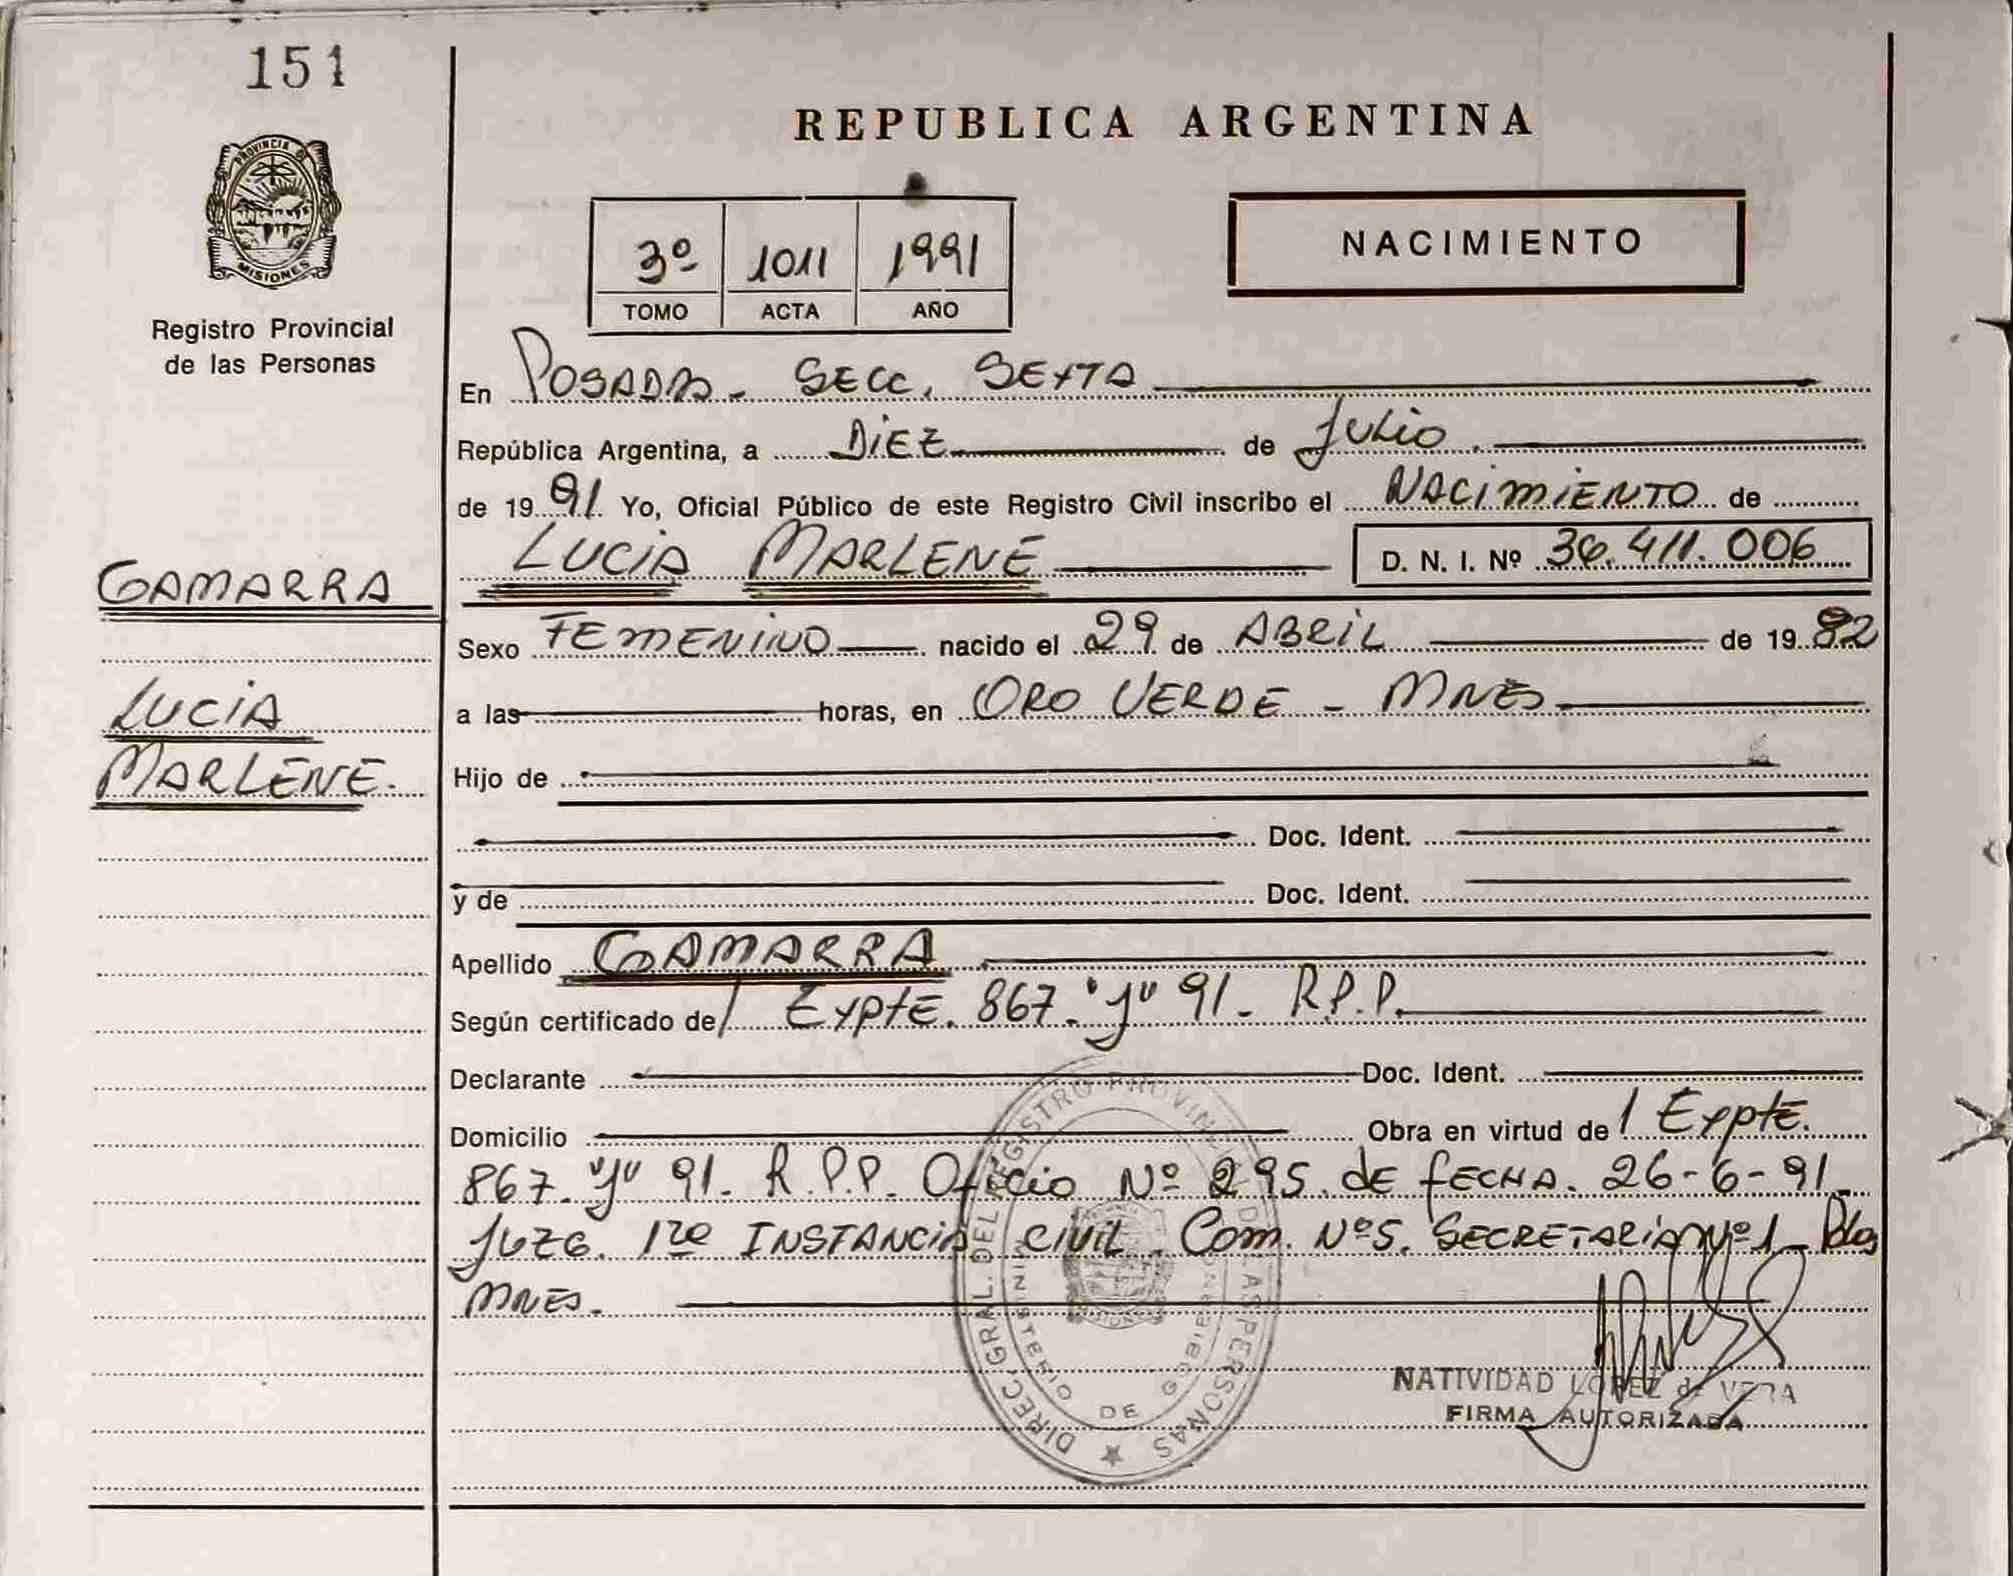 151
PROVINCIA DE
MISIONES
Registro Provincial
de las Personas
GAMARRA
LUCIA
MARLENE.
REPUBLICA ARGENTINA
3º 1011 1991
TOMO ACTA AÑO
NACIMIENTO
En POSADAS - SECC. SEXTA
República Argentina, a DIEZ de JULIO.
de 1991 Yo, Oficial Público de este Registro Civil inscribo el NACIMIENTO de
LUCIA MARLENE D. N. I. Nº 36.411.006
Sexo FEMENINO nacido el 29 de ABRIL de 1982
a las horas, en ORO VERDE - MNES
Hijo de
Doc. Ident.
y de Doc. Ident.
Apellido GAMARRA
Según certificado de/ EXPTE. 867. "J" 91 - R.P.P.
Declarante Doc. Ident.
Domicilio Obra en virtud de/ EXPTE.
867. "J" 91 - R.P.P. OFICIO Nº 295. DE FECHA. 26-6-91
JUZG. 1ra INSTANCIA CIVIL. Com. Nº5. SECRETARIA Nº1 - Pdas
MNES.
DIREC. GRAL. DEL REGISTRO PROVINCIAL DE LAS PERSONAS
MINISTERIO DE GOBIERNO
NATIVIDAD LOPEZ de VERA
FIRMA AUTORIZADA